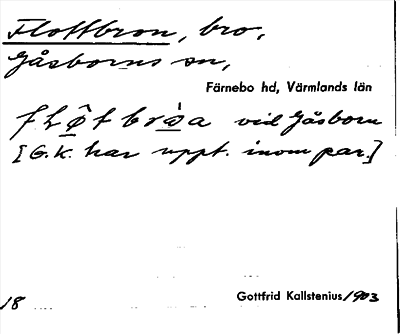 Flottbron, bro,
Gåsborns sn,
Färnebo hd, Värmlands län
vid Gåsborn
[G. K. har uppt. inom par.]
Gottfrid Kallstenius 1903
18